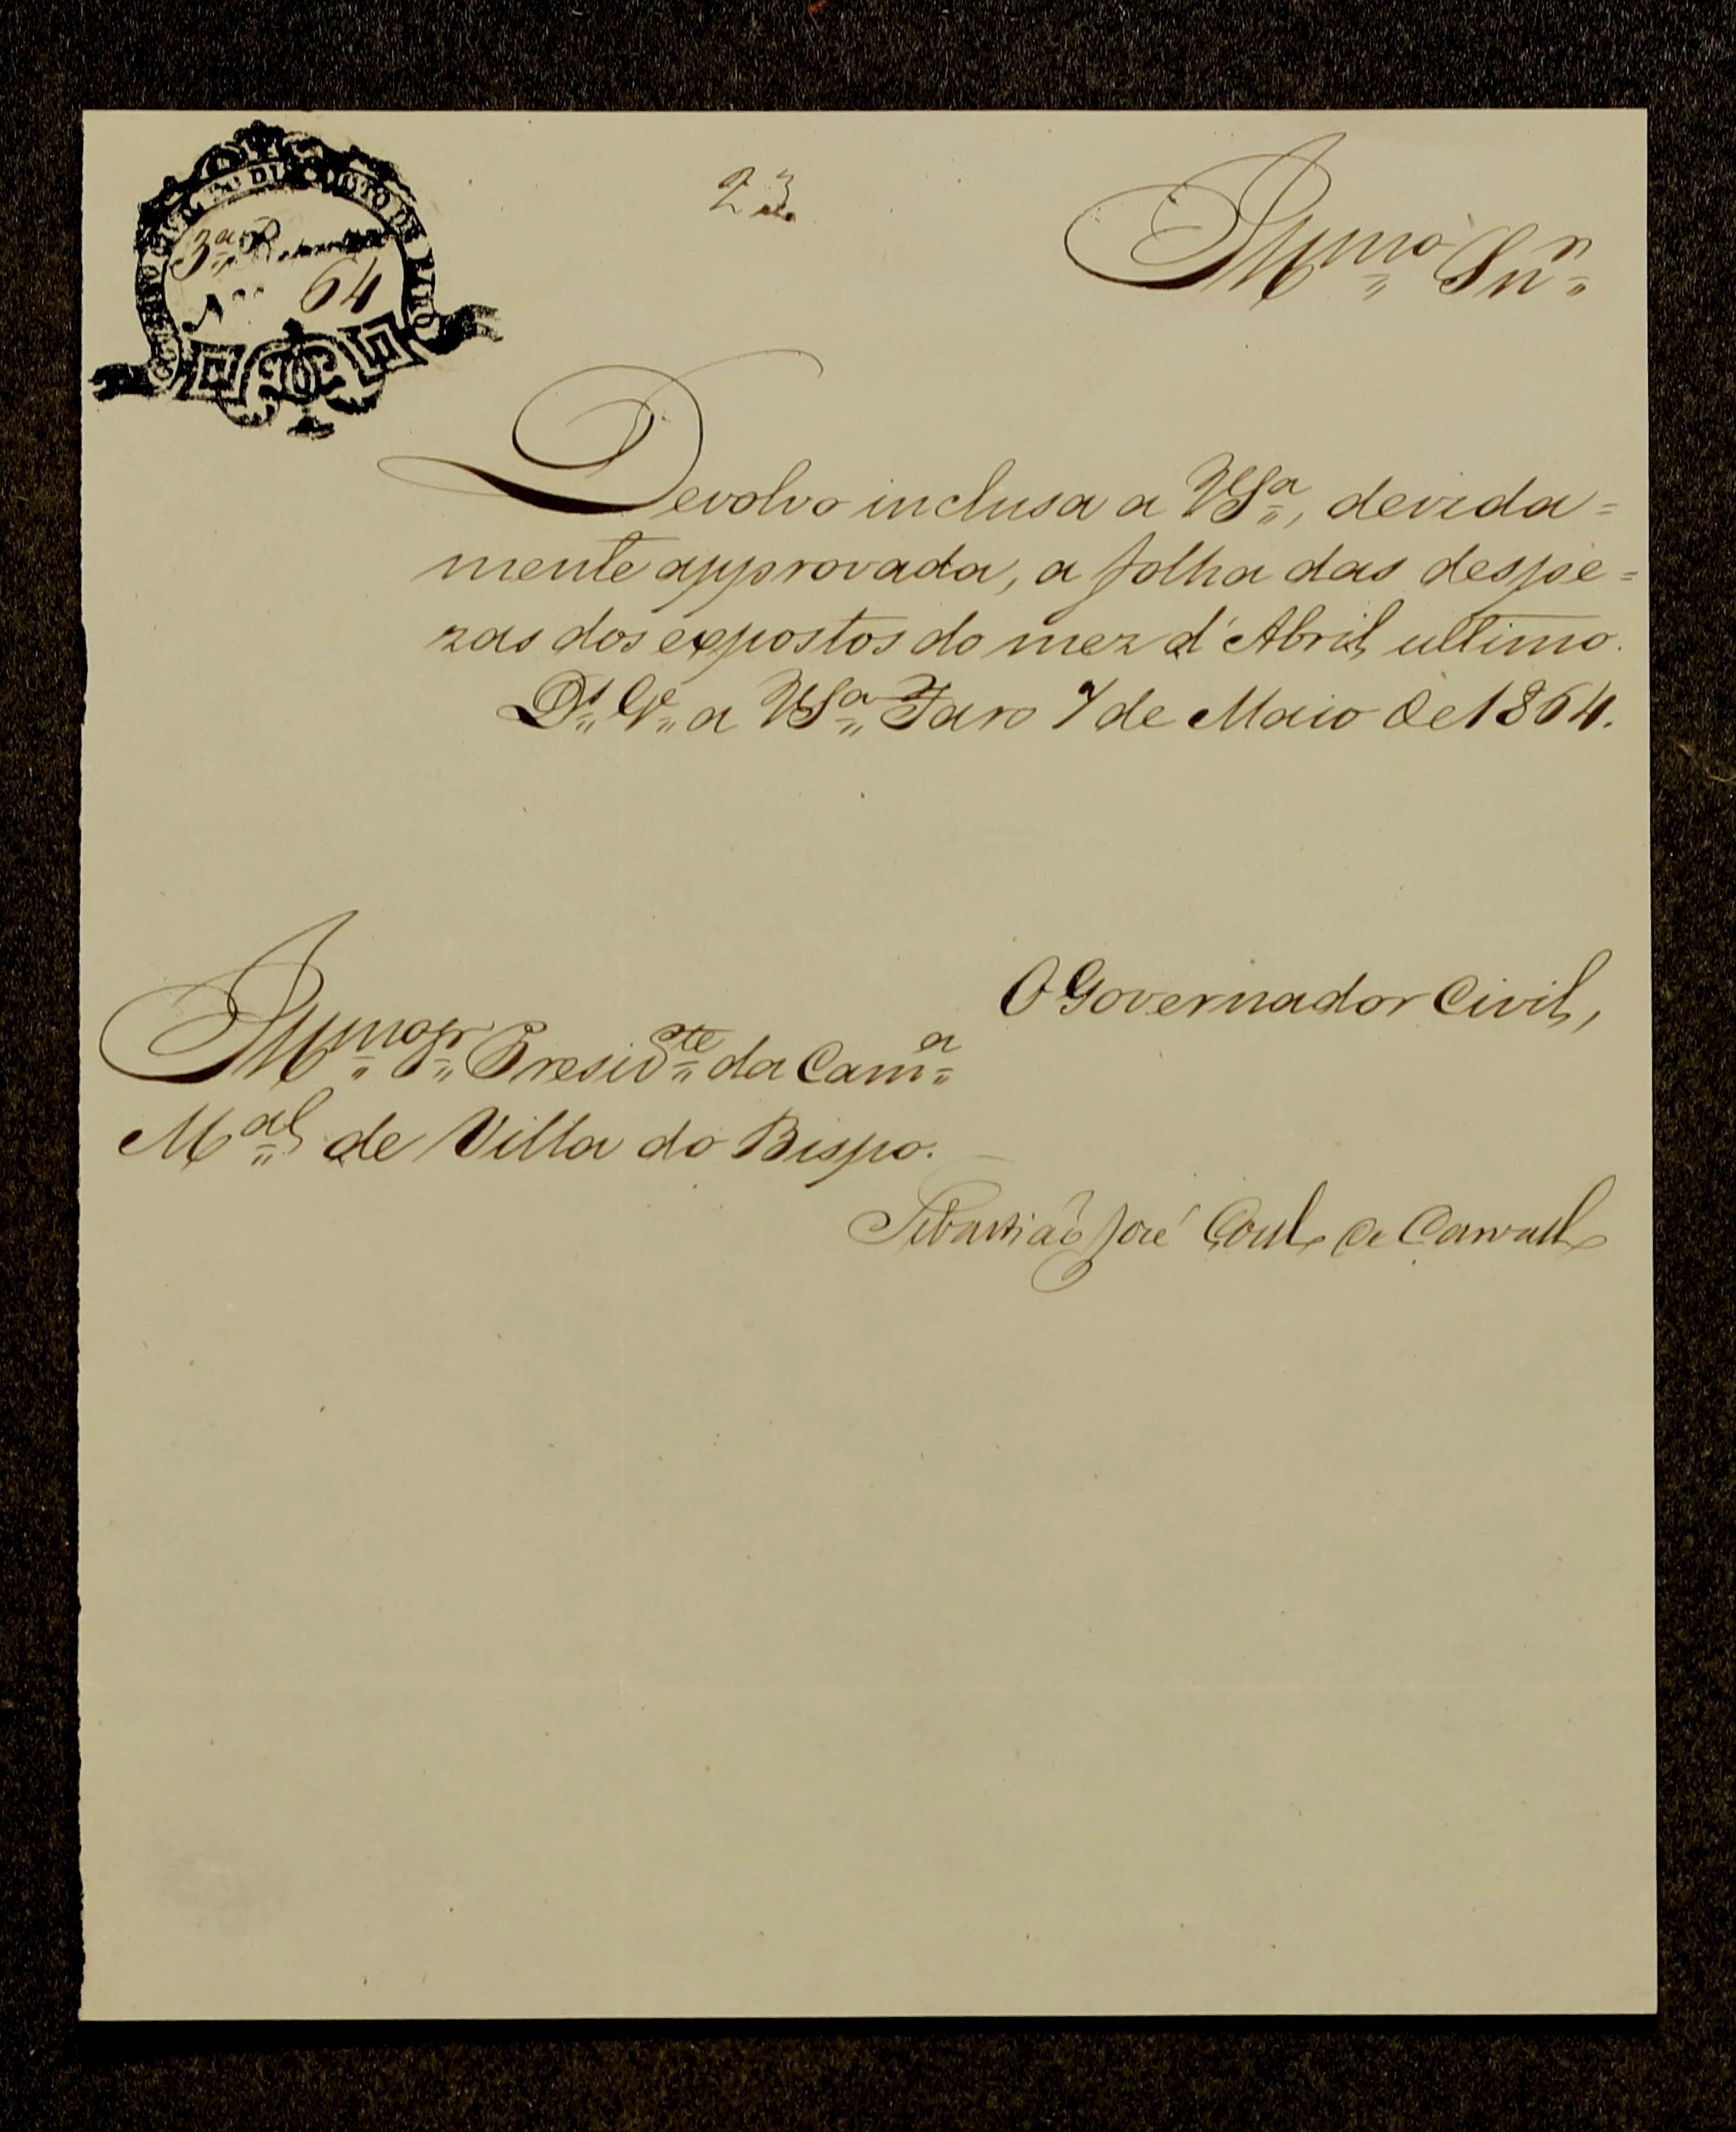 GOVERNO CIVIL DO DISTRICTO DE FARO
3ª Repartição
Nº 64
23
Illmo Snr
Devolvo inclusa a VSª, devida=
mente approvada, a folha das despe=
zas dos expostos do mez d'Abril ultimo.
Ds. Ge. a VSª Faro 7 de Maio de 1864.
O Governador Civil,
Illmo Sr. Presidte da Camª
Mal de Villa do Bispo.
Sebastião José Coelho de Carvalho